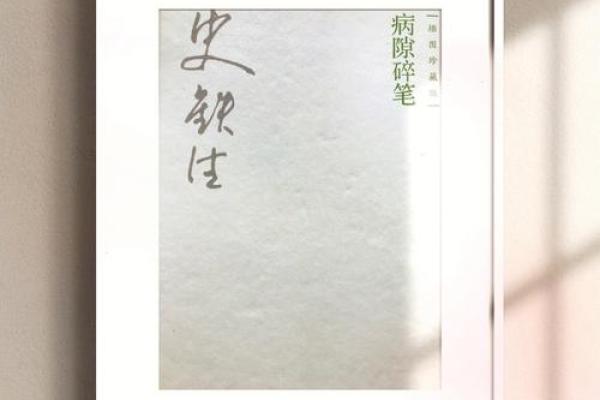 史铁生
病隙碎笔
插图珍藏